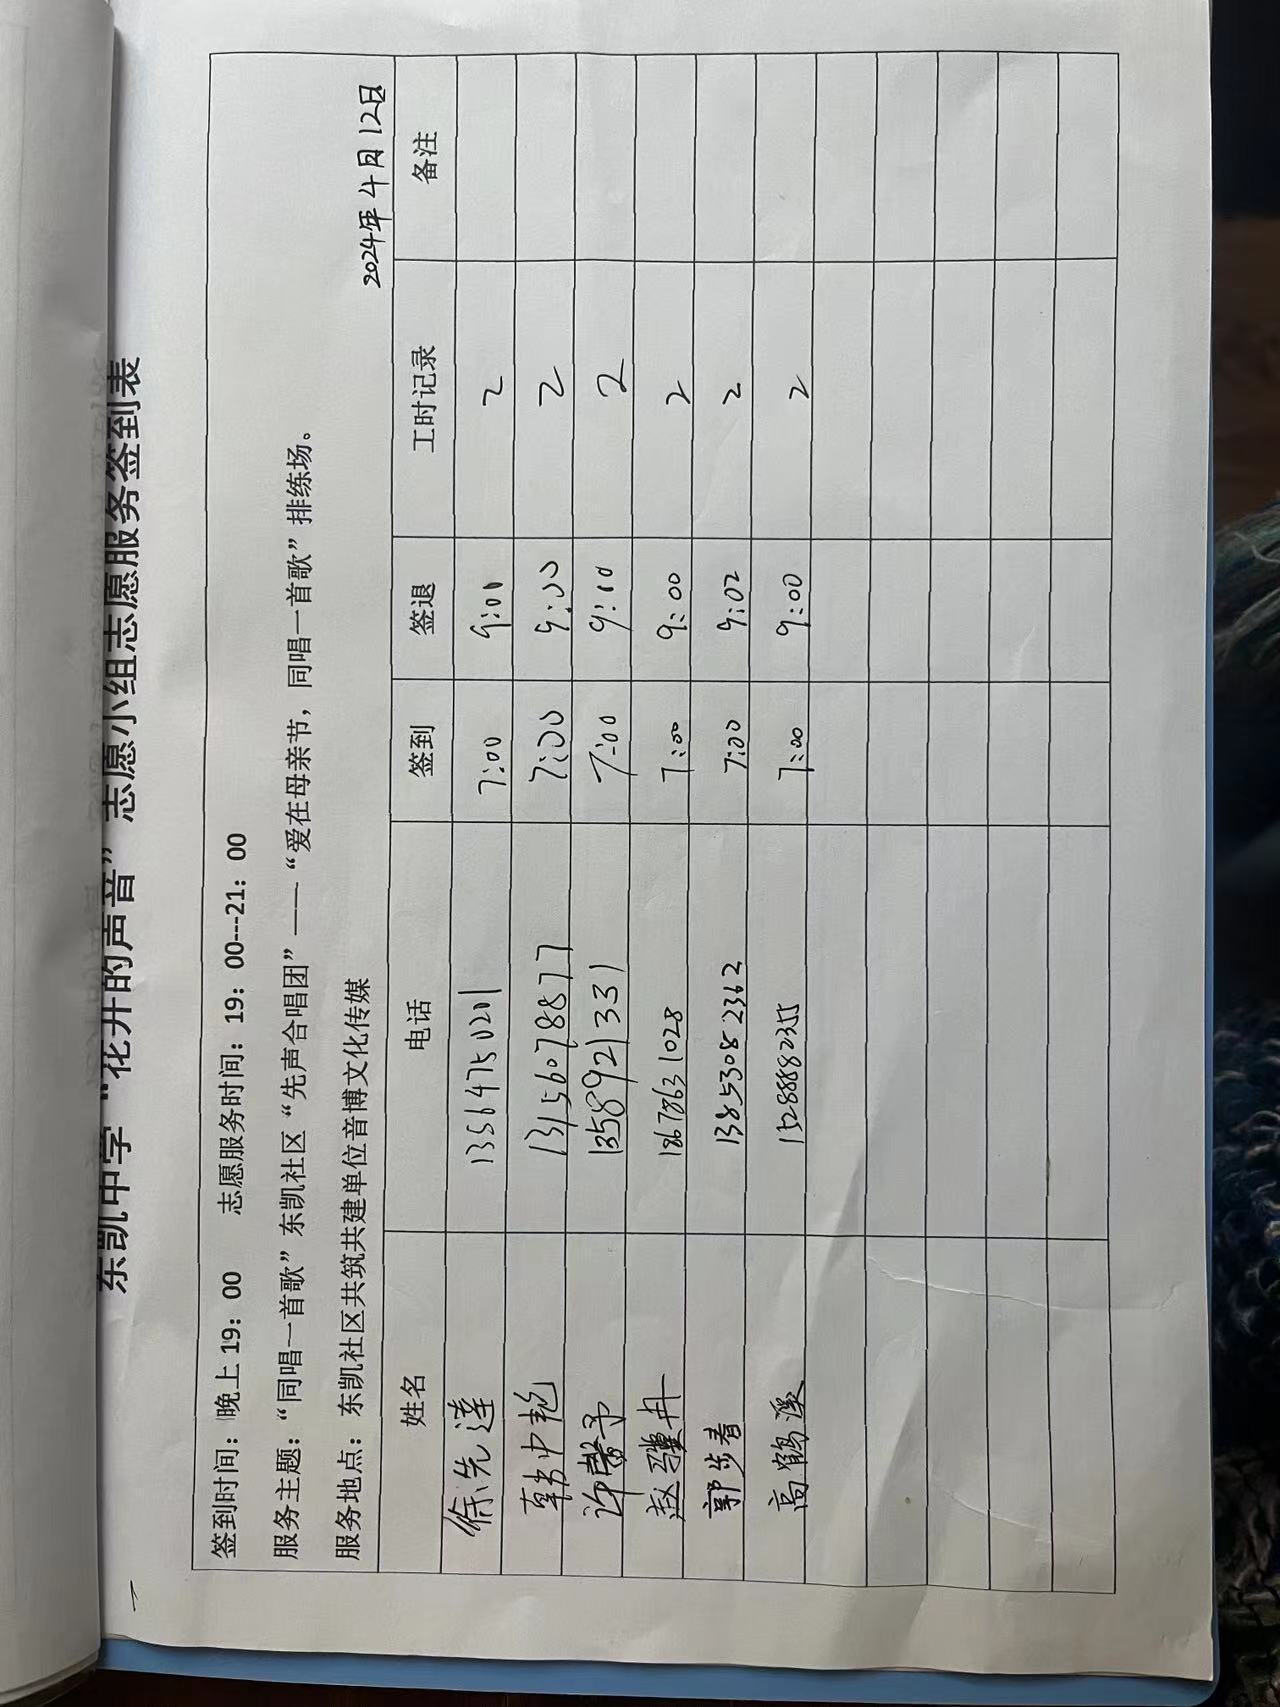 东凯中学“花开的声音”志愿小组志愿服务签到表
签到时间：晚上19：00 志愿服务时间：19：00---21：00
服务主题：“同唱一首歌”东凯社区“先声合唱团”——“爱在母亲节，同唱一首歌”排练场。
服务地点：东凯社区共筑共建单位音博文化传媒 2024年4月12日
姓名 电话 签到 签退 工时记录 备注
徐先達 13564750201 7:00 9:00 2
韩中艳 13156078877 7:00 9:00 2
许馨予 13589121331 7:00 9:10 2
赵骥冉 18678631028 7:00 9:00 2
郭步青 13853082362 7:00 9:02 2
高鹤溪 15288882355 7:00 9:00 2